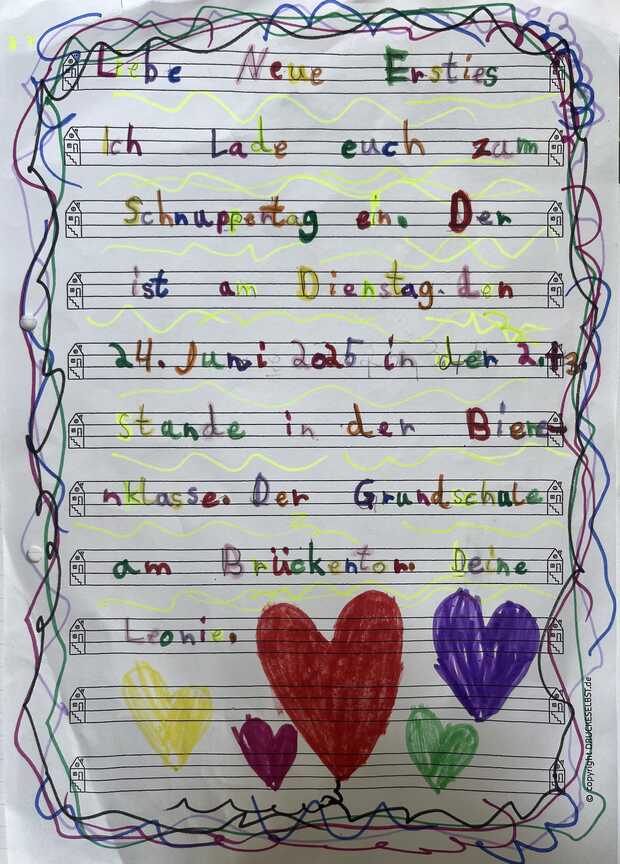 Liebe Neue Ersties
Ich Lade euch zam
Schnuppertag ein. Der
ist am Dienstag. den
24. Juni 2025 in der 2.+3.
stunde in der Biere-
nklasse. Der Grundschule
am Brückentor. Deine
Leonie.
© copyright DRUCKESELBST.de